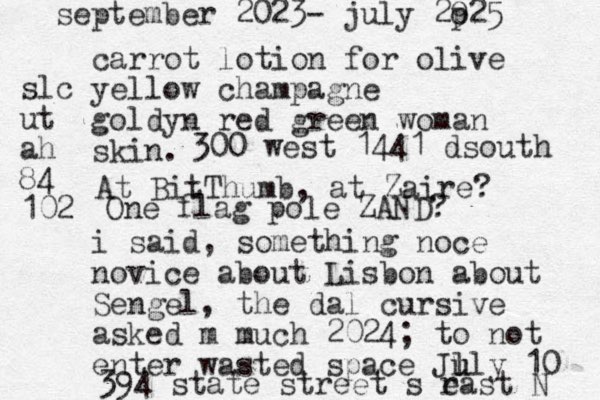 september 2023- july 2025
carrot lotion for olive
slc yellow champagne
ut goldyn red green woman
ah skin. 300 west 1441 dsouth
84 At BitThumb, at Zaire?
102 One flag pole ZAND?
i said, something noce
novice about Lisbon about
Sengel, the dal cursive
asked m much 2024; to not
enter wasted space July 10
394 state street s east N